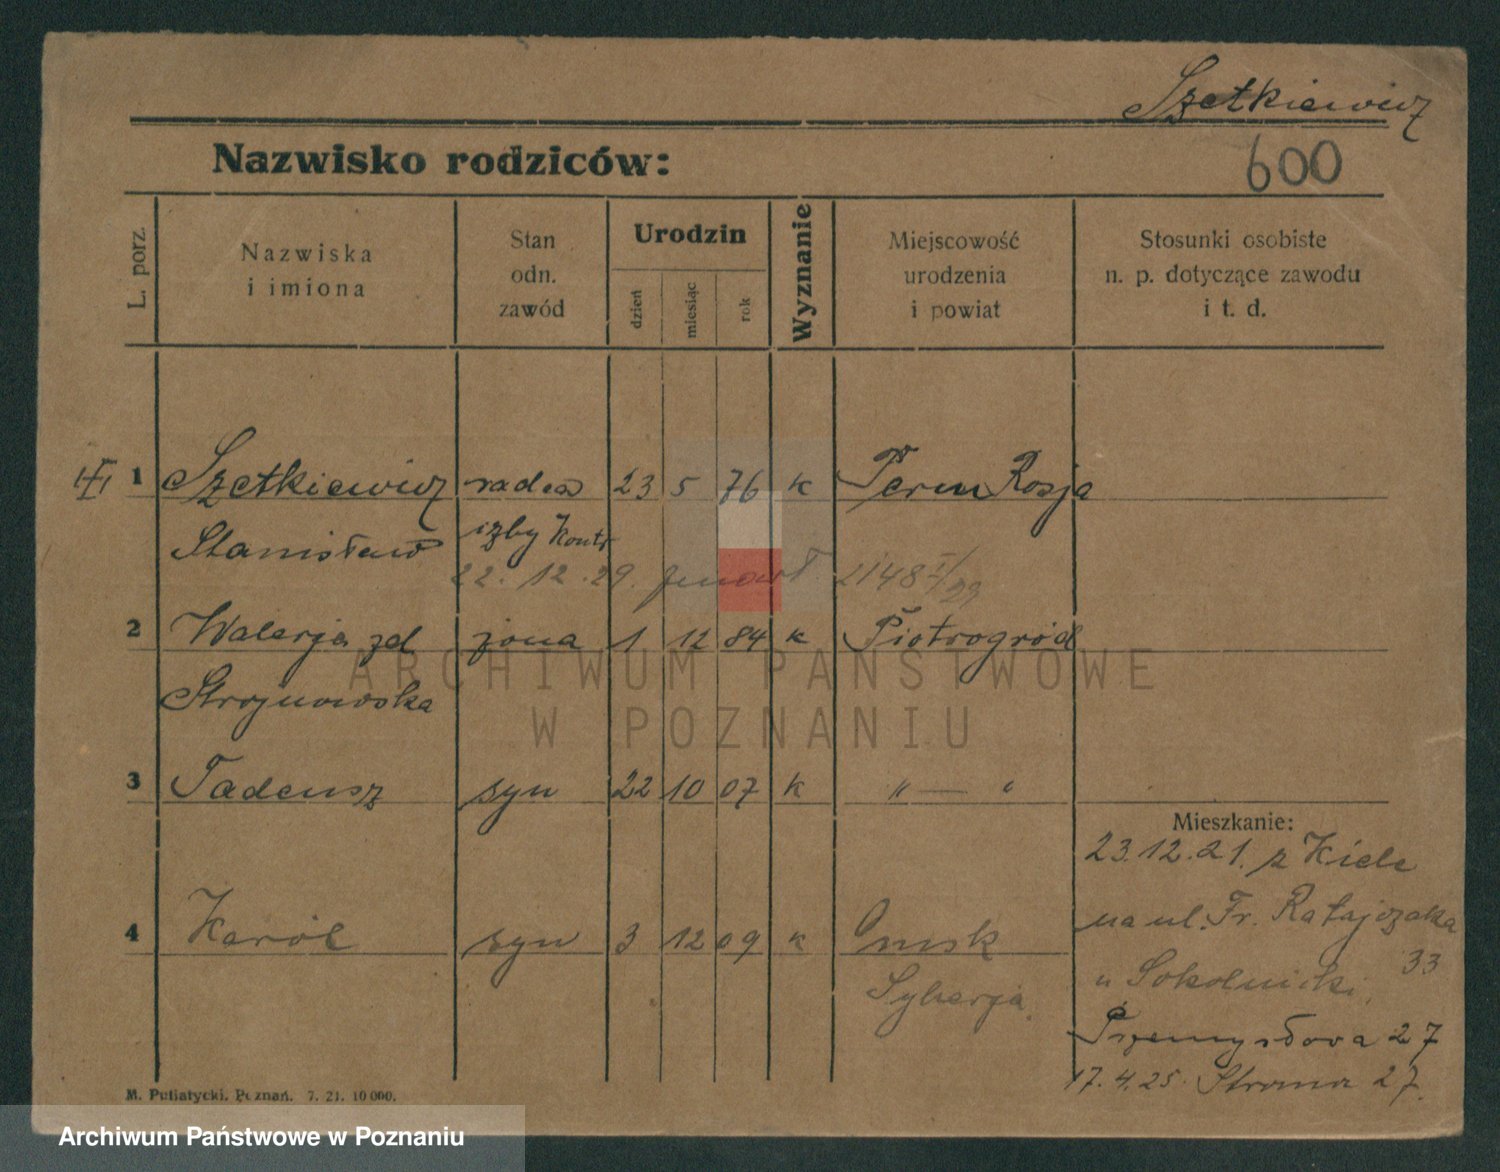 Szetkiewicz
Nazwisko rodziców:
600
L. porz.
Nazwiska
i imiona
Stan
odn.
zawód
Urodzin
dzień
miesiąc
rok
Wyznanie
Miejscowość
urodzenia
i powiat
Stosunki osobiste
n. p. dotyczące zawodu
i t. d.
1 Szetkiewicz radca 23 5 76 k Perm Rosja
Stanisław izby Kontr
22. 12. 29. zmarł 2148
2 Walerja zd żona 1 12 84 k Piotrogród
Strojnowska
ARCHIWUM PAŃSTWOWE
W POZNANIU
3 Tadeusz syn 22 10 07 k " — "
Mieszkanie:
23.12.21. z Kielc
na ul. Fr. Ratajczaka
33
4 Karól syn 3 12 09 k Omsk
Syberja.
u Sokolnicki.
Przemysłowa 27
17. 4. 25. Stroma 27.
M. Putiatycki, Poznań. 7. 21. 10 000.
Archiwum Państwowe w Poznaniu